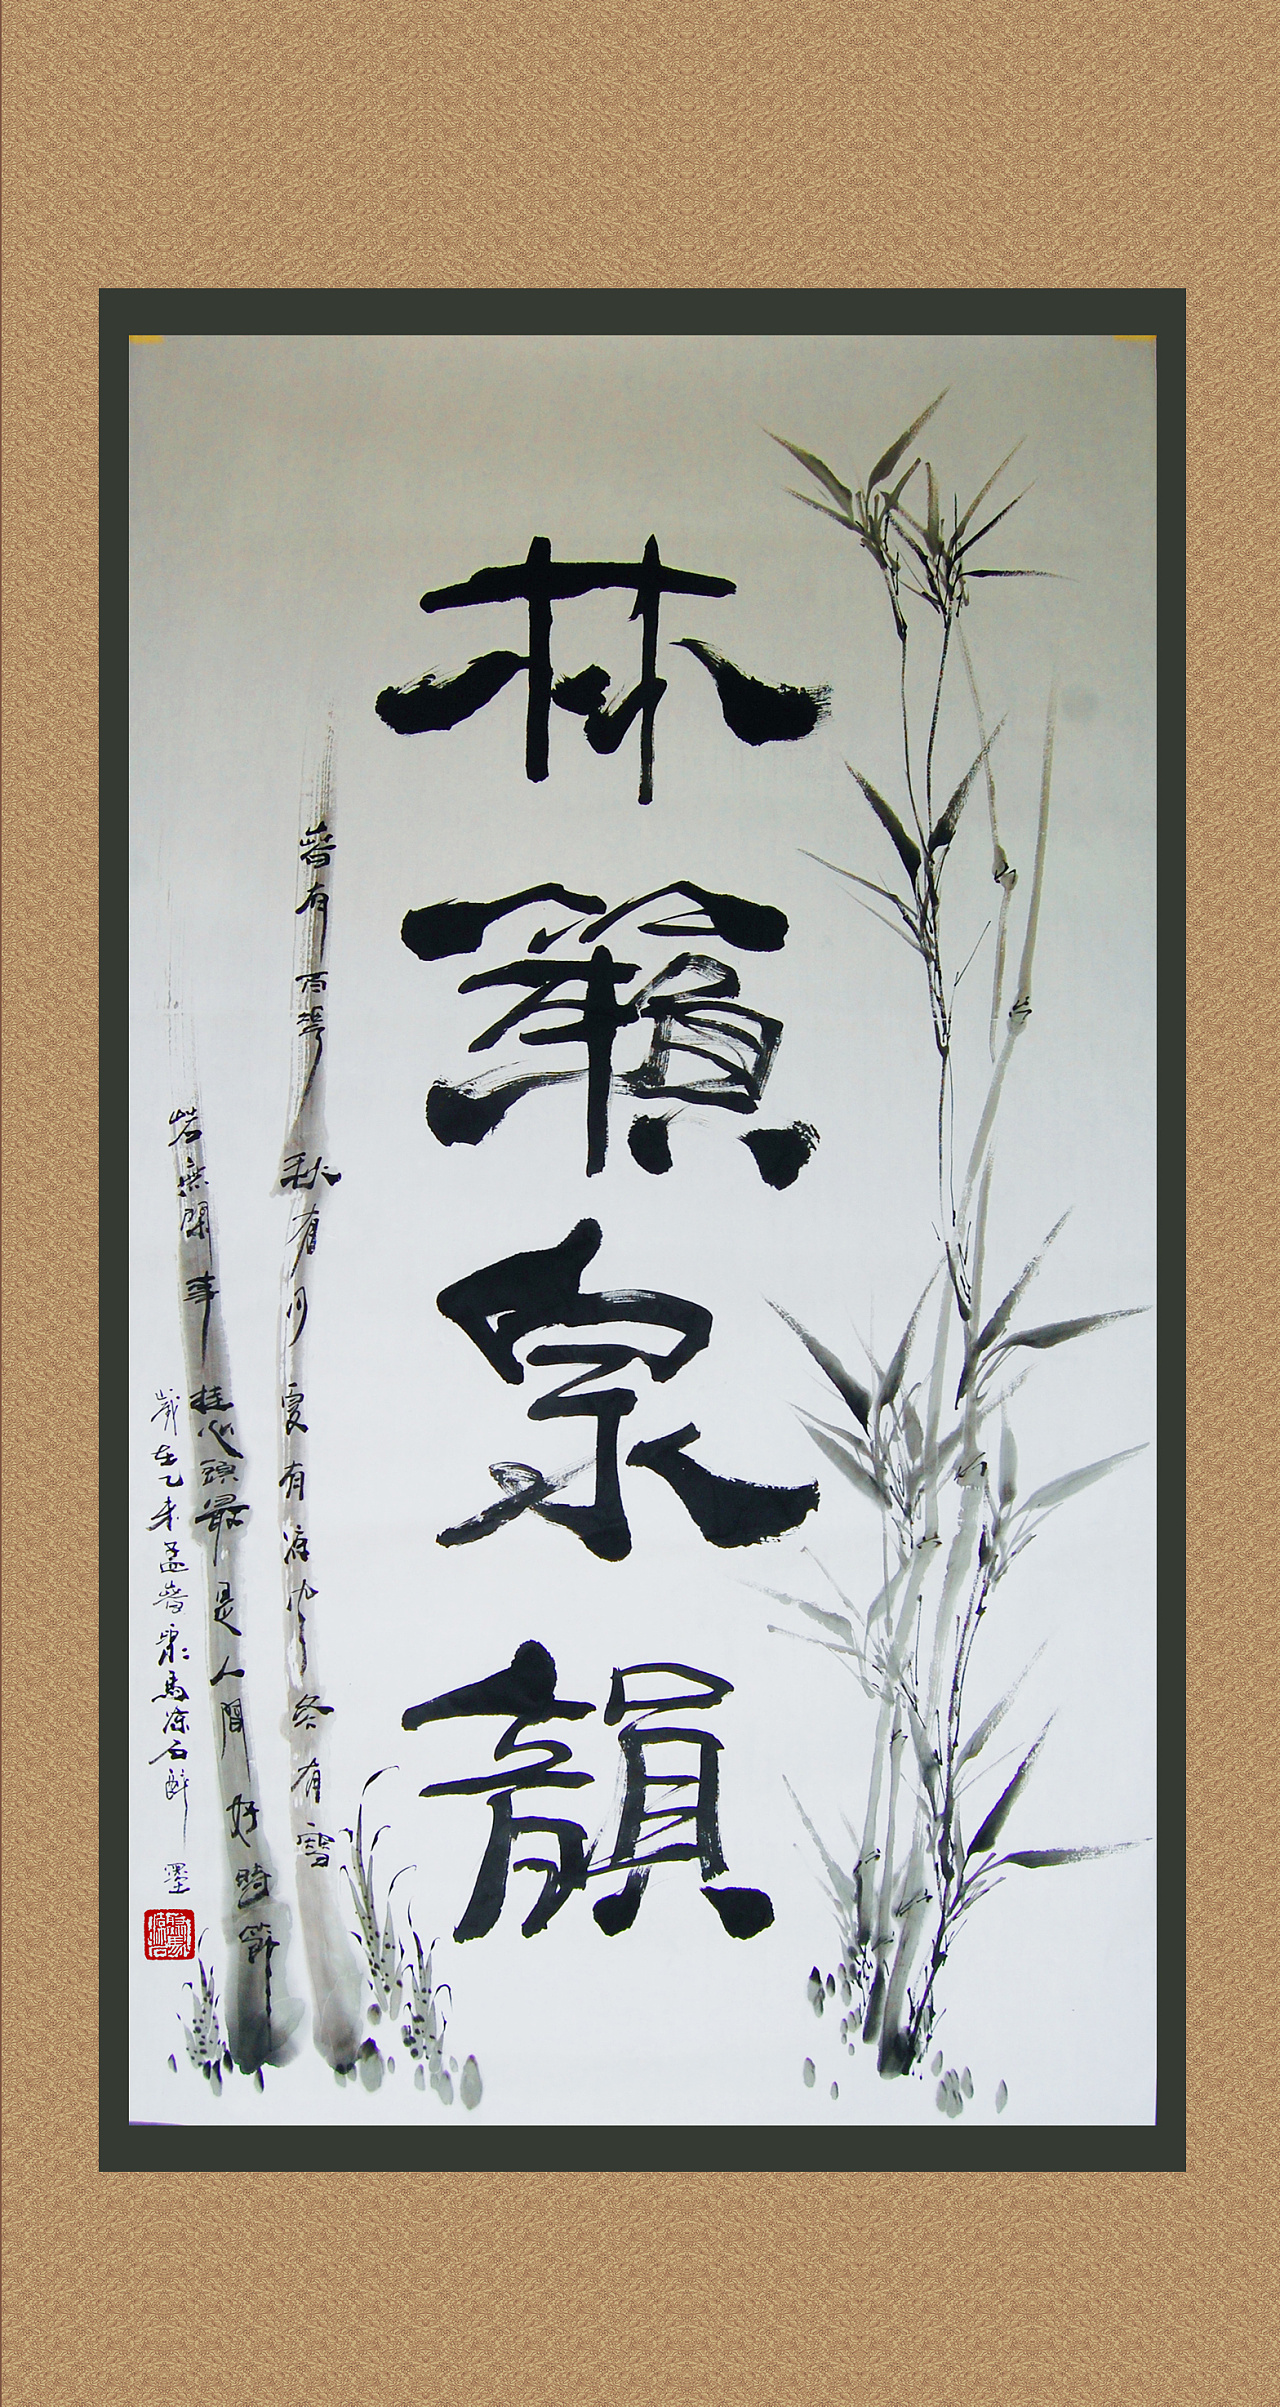 林籟泉韻
春有百花秋有月夏有涼風冬有雪
若無閑事挂心頭最是人間好時節
歲在乙未孟春鬃馬涂石醉墨